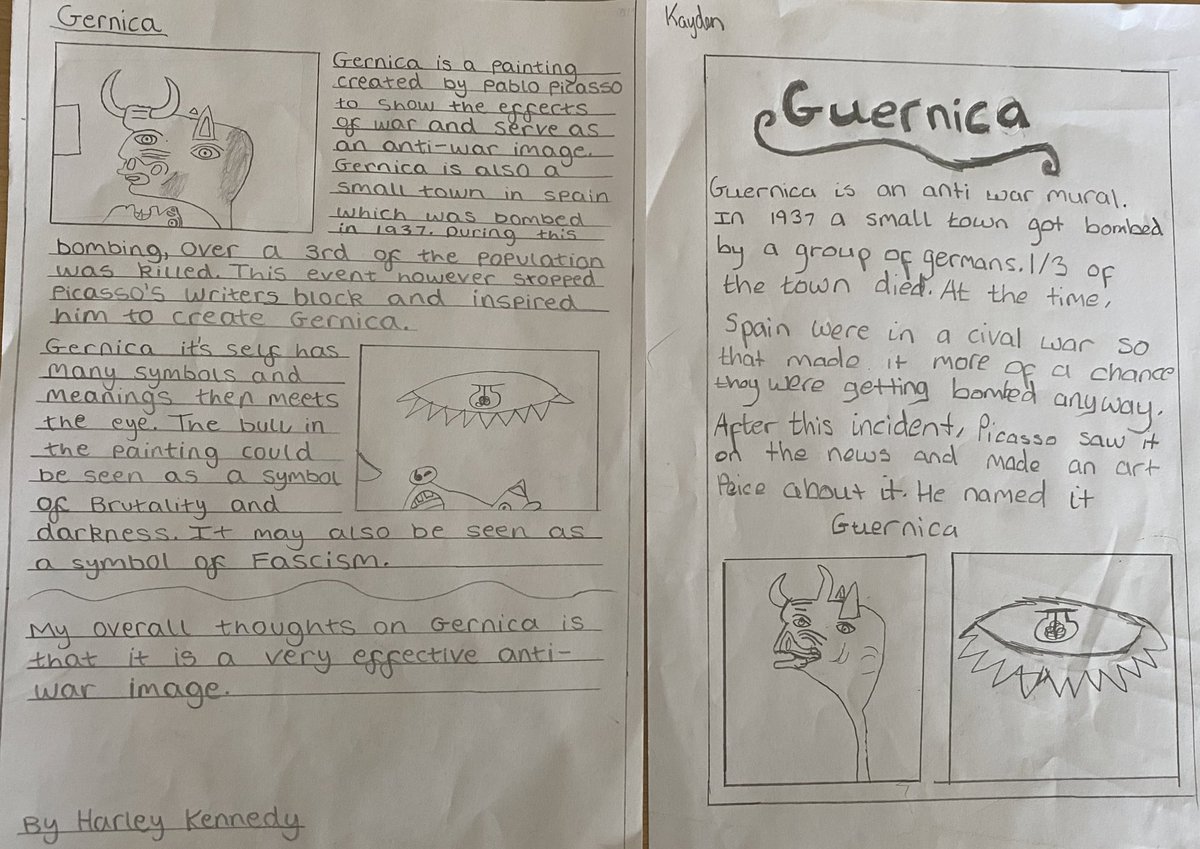 Gernica
Gernica is a painting
created by Pablo Picasso
to show the effects
of war and serve as
an anti-war image.
Gernica is also a
small town in spain
which was bombed
in 1937. During this
bombing, over a 3rd of the population
was killed. This event however stopped
Picasso's writers block and inspired
him to create Gernica.
Gernica it's self has
many symbols and
meanings then meets
the eye. The bull in
the painting could
be seen as a symbol
of Brutality and
darkness. It may also be seen as
a symbol of Fascism.
My overall thoughts on Gernica is
that it is a very effective anti-
war image.
By Harley Kennedy
Kayden
Guernica
Guernica is an anti war mural.
In 1937 a small town got bombed
by a group of germans. 1/3 of
the town died. At the time,
Spain were in a cival war so
that made it more of a chance
they were getting bombed anyway.
After this incident, Picasso saw it
on the news and made an art
Peice about it. He named it
Guernica